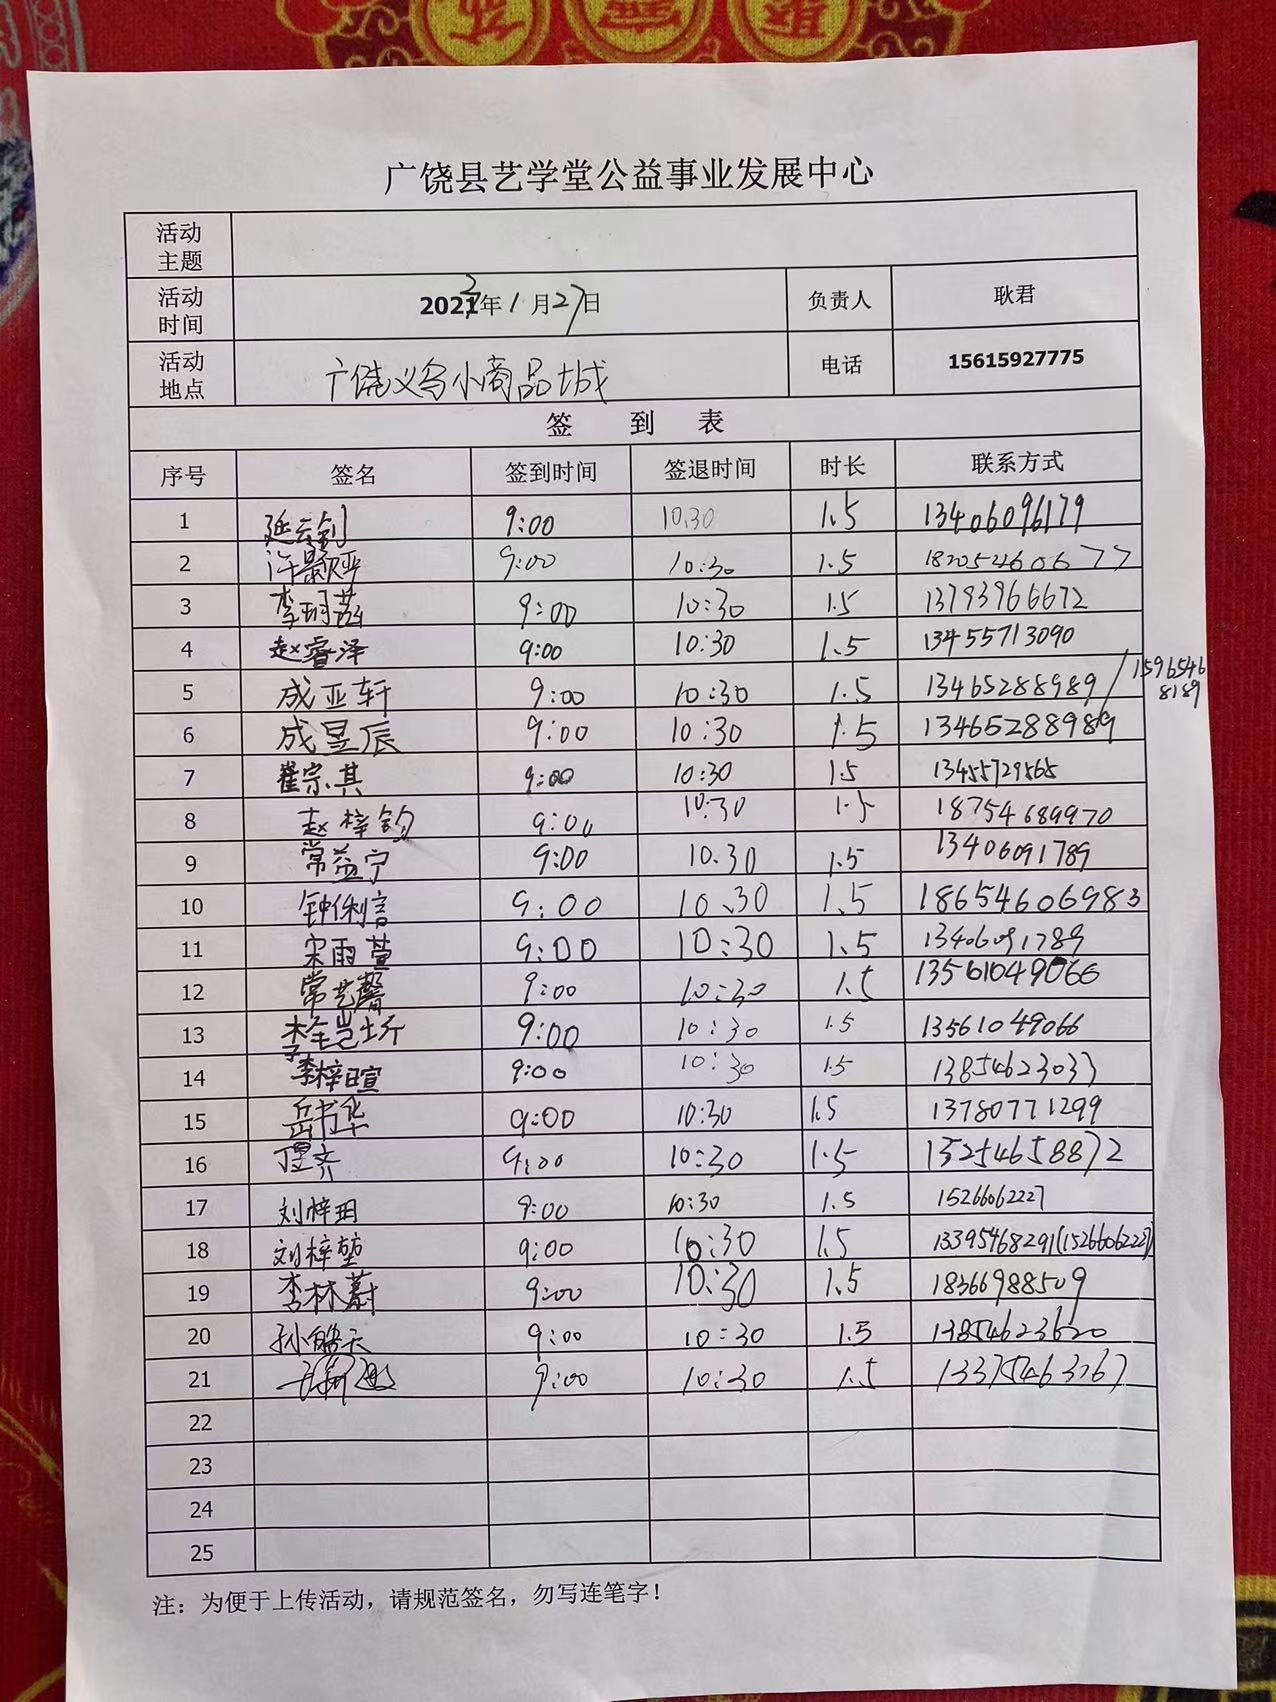 广饶县艺学堂公益事业发展中心
活动主题
活动时间 2022年1月27日 负责人 耿君
活动地点 广饶义乌小商品城 电话 15615927775
签 到 表
序号 签名 签到时间 签退时间 时长 联系方式
1 延云钊 9:00 10:30 1.5 13406096179
2 许景 9:00 10:30 1.5 18205460677
3 李玥菡 9:00 10:30 1.5 13793966672
4 赵睿泽 9:00 10:30 1.5 13455713090
5 成亚轩 9:00 10:30 1.5 13465288989/15965468189
6 成昱辰 9:00 10:30 1.5 13465288989
7 崔宗其 9:00 10:30 1.5 13455729565
8 赵梓钧 9:00 10:30 1.5 18754689970
9 常益宁 9:00 10.30 1.5 13406091789
10 钟俐言 9:00 10.30 1.5 18654606983
11 宋雨萱 9:00 10:30 1.5 13406091789
12 常艺馨 9:00 10:30 1.5 13561049066
13 李 9:00 10:30 1.5 13561049066
14 李梓暄 9:00 10:30 1.5 13854623033
15 岳书华 9:00 10:30 1.5 13780771299
16 9:00 10:30 1.5 13254658872
17 刘梓玥 9:00 10:30 1.5 15266062227
18 刘梓堃 9:00 10:30 1.5 13395468291(15266062227)
19 李林蔚 9:00 10:30 1.5 18366988509
20 孙皓天 9:00 10:30 1.5 13854623620
21 9:00 10:30 1.5 13375463267
22
23
24
25
注：为便于上传活动，请规范签名，勿写连笔字！